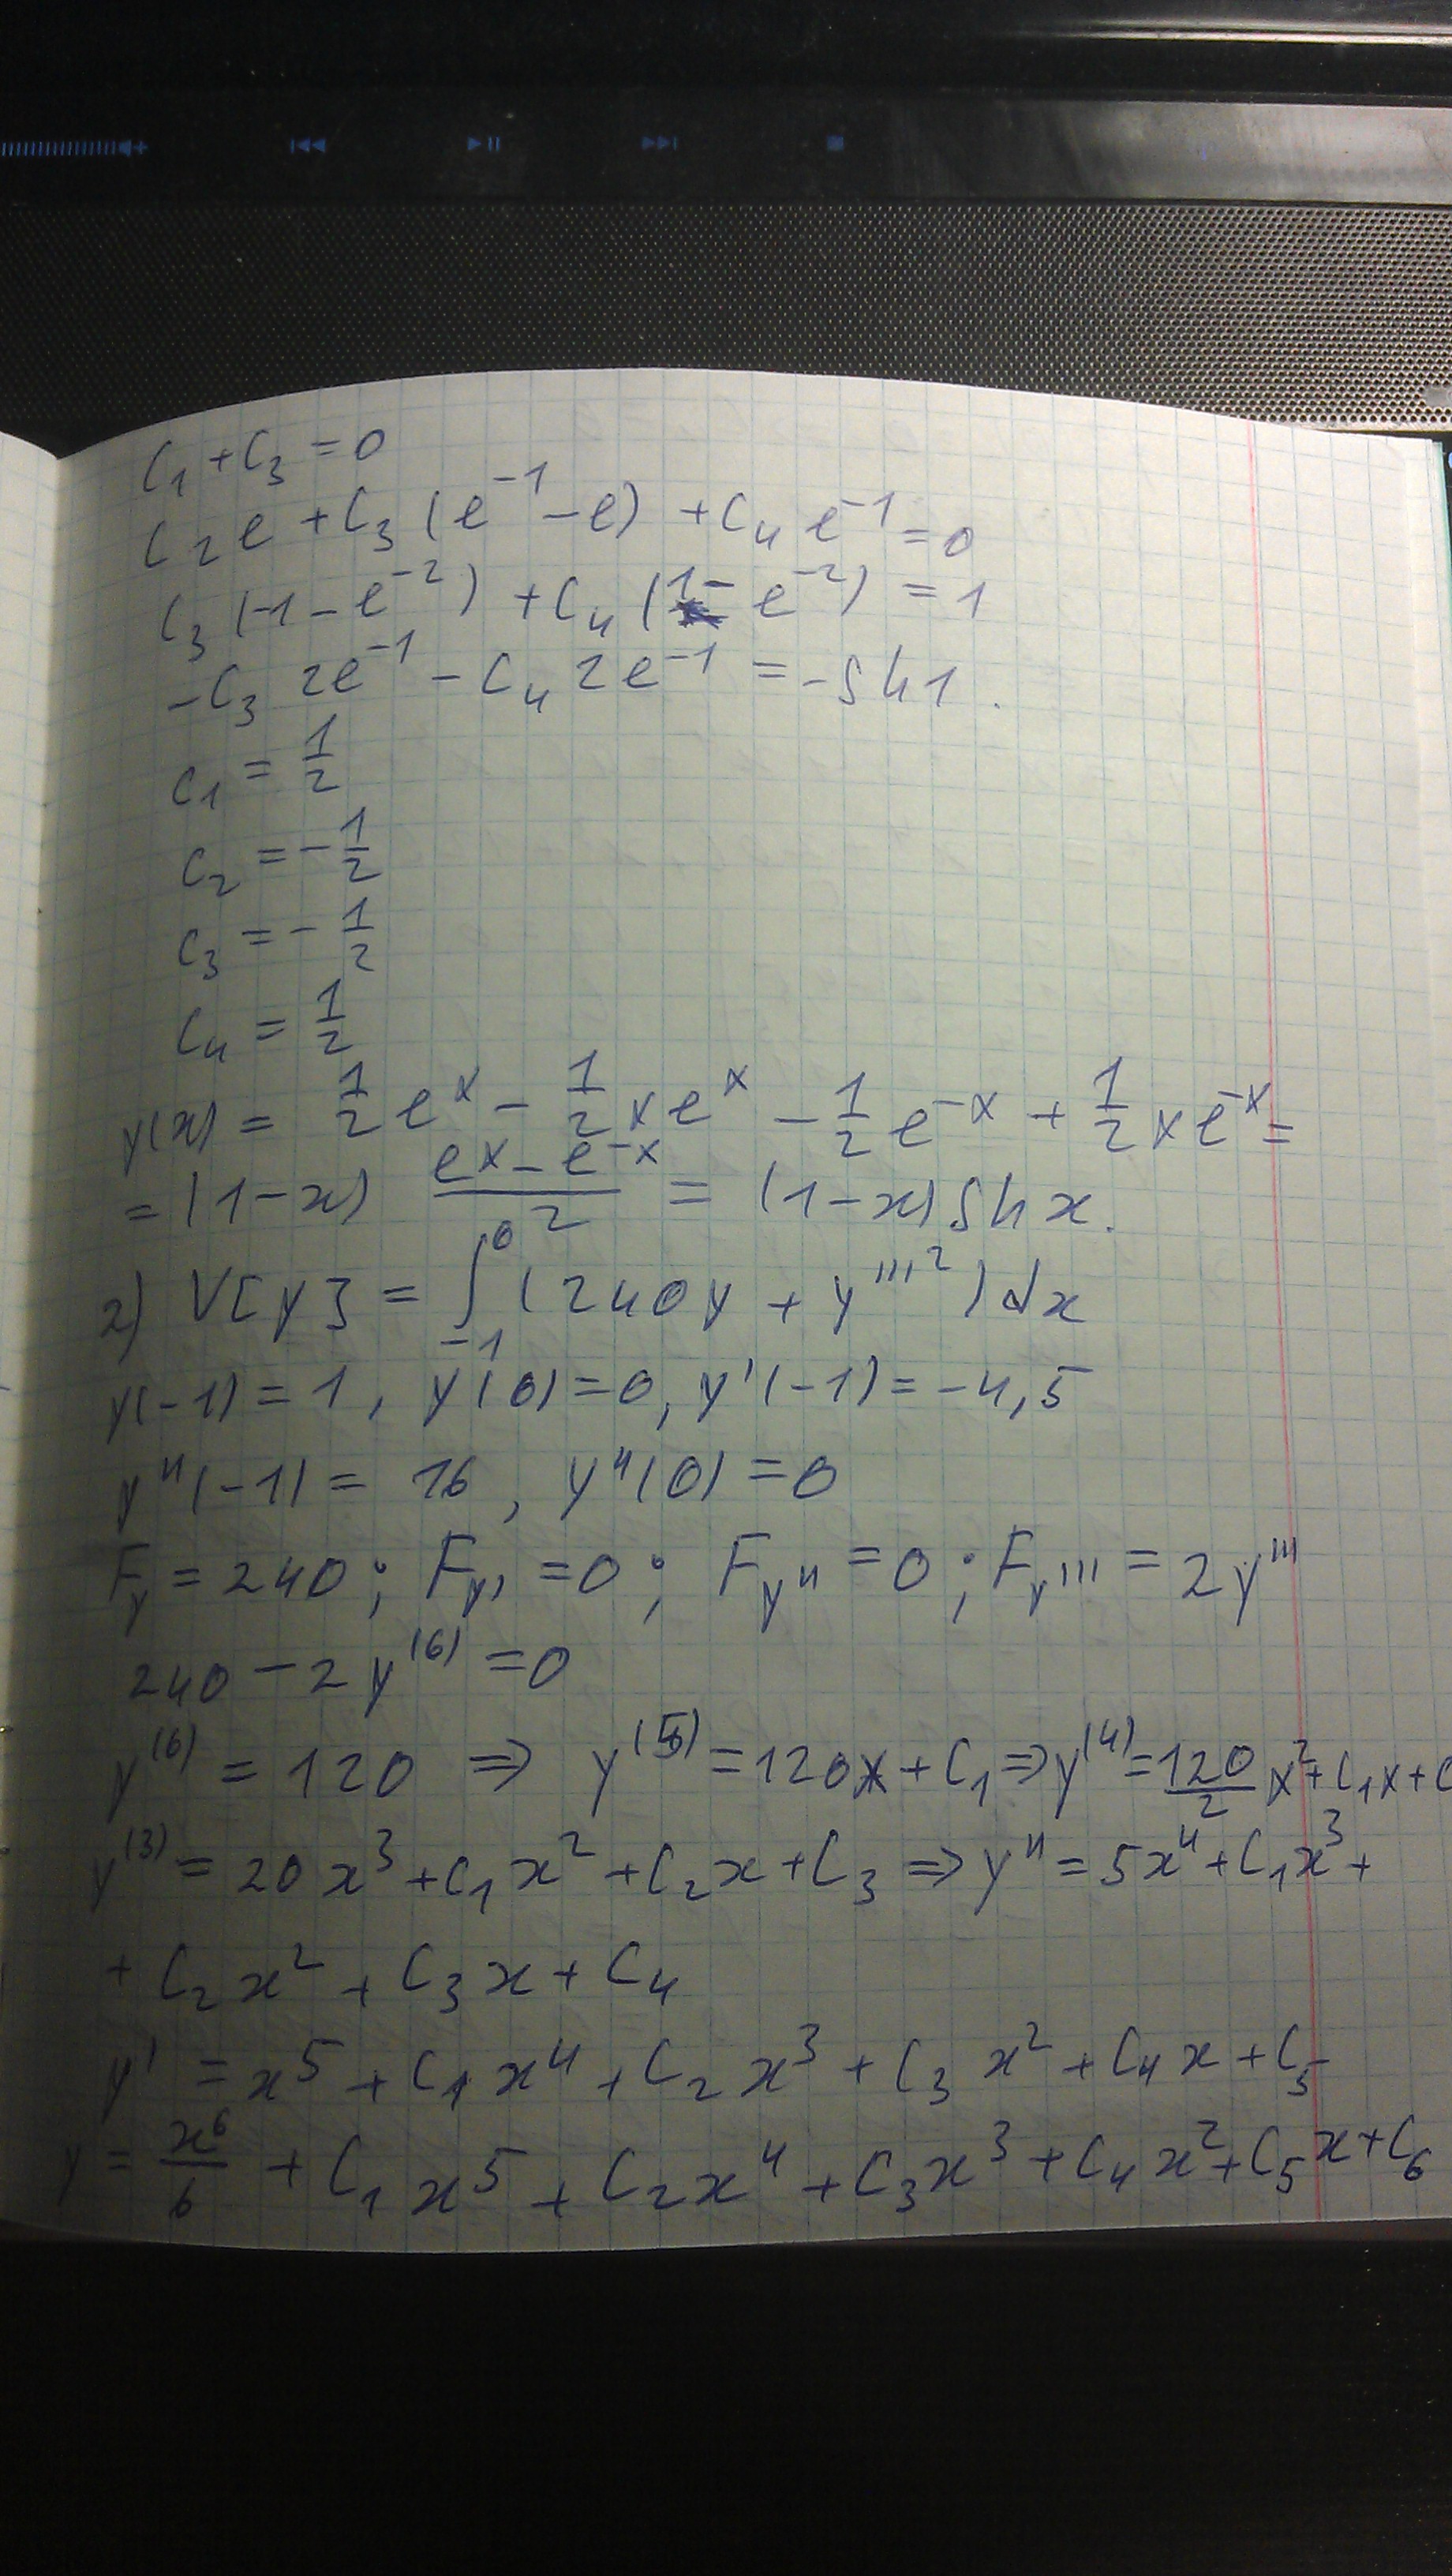 C₁ + C₃ = 0
C₂e + C₃(e⁻¹ − e) + C₄e⁻¹ = 0
C₃(−1 − e⁻²) + C₄(1 − e⁻²) = 1
−C₃ 2e⁻¹ − C₄ 2e⁻¹ = −sh1.
C₁ = 1/2
C₂ = −1/2
C₃ = −1/2
C₄ = 1/2
y(x) = 1/2 eˣ − 1/2 xeˣ − 1/2 e⁻ˣ + 1/2 xe⁻ˣ =
= (1−x) (eˣ − e⁻ˣ)/2 = (1−x) sh x.
2) V[y] = ∫₋₁⁰ (240y + y'''²) dx
y(−1) = 1, y(0) = 0, y'(−1) = −4,5
y''(−1) = 16, y''(0) = 0
F_y = 240; F_y' = 0; F_y'' = 0; F_y''' = 2y'''
240 − 2y⁽⁶⁾ = 0
y⁽⁶⁾ = 120 ⇒ y⁽⁵⁾ = 120x + C₁ ⇒ y⁽⁴⁾ = 120/2 x² + C₁x + C
y⁽³⁾ = 20x³ + C₁x² + C₂x + C₃ ⇒ y'' = 5x⁴ + C₁x³ +
+ C₂x² + C₃x + C₄
y' = x⁵ + C₁x⁴ + C₂x³ + C₃x² + C₄x + C₅
y = x⁶/6 + C₁x⁵ + C₂x⁴ + C₃x³ + C₄x² + C₅x + C₆